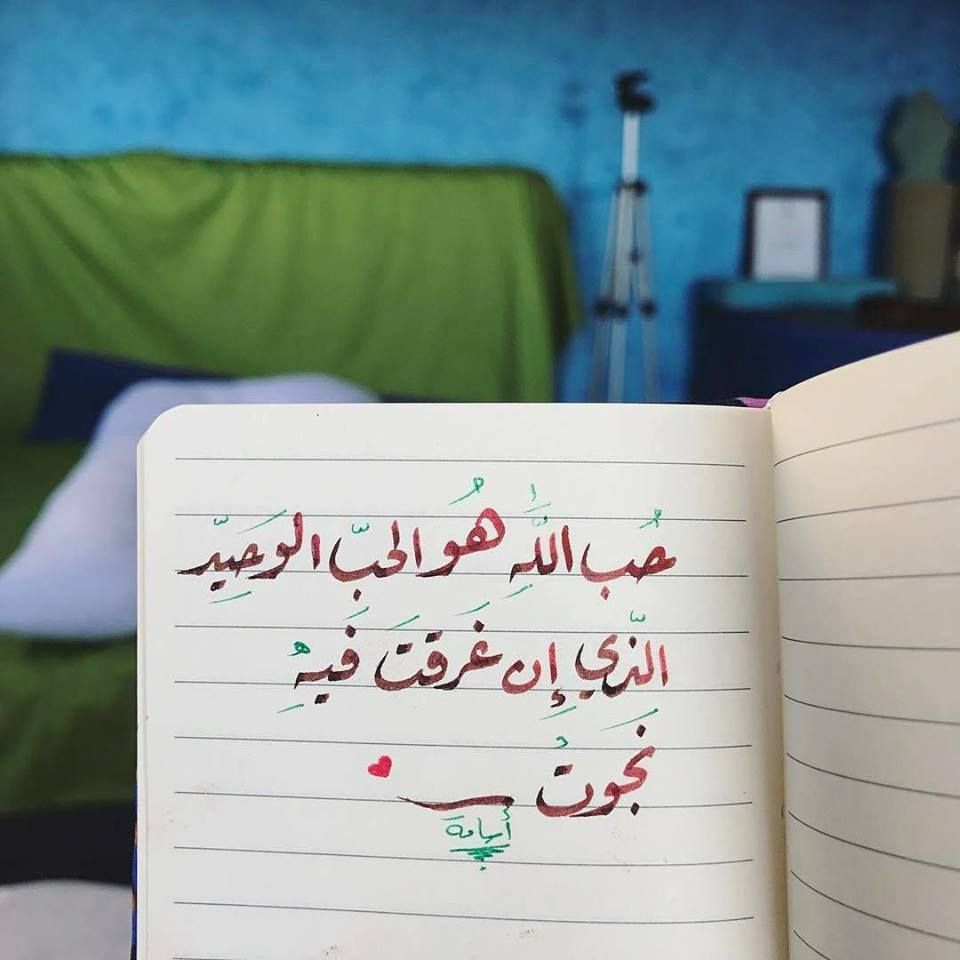 حُب اللَّهِ هُو الحبّ الوَحِيّد
الّذي إِن غَرقتَ فَيهِ
نَجَوتُ
أسامة